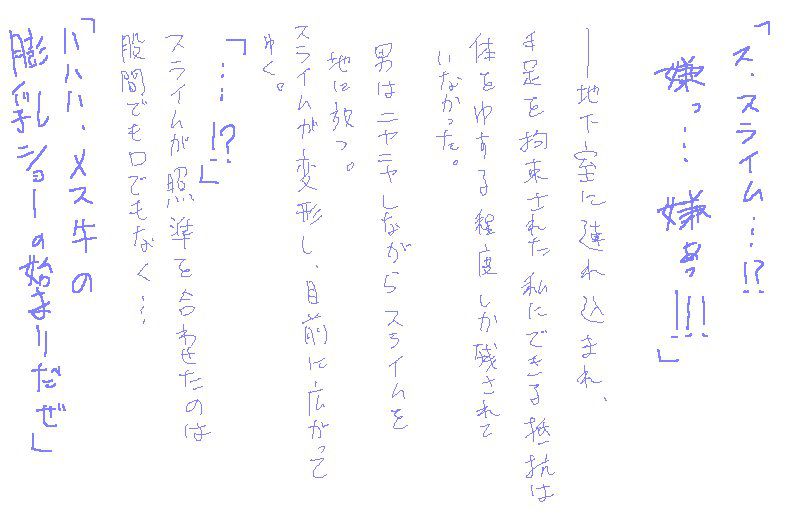 「ス・スライム…!?
嫌っ…嫌ぁっ!!!」
――地下室に連れ込まれ、
手足を拘束された私にできる抵抗は
体をゆする程度しか残されて
いなかった。
男はニヤニヤしながらスライムを
地に放つ。
スライムが変形し、目前に広がって
ゆく。
「…!?」
スライムが照準を合わせたのは
股間でも口でもなく…
「ハハハ・メス牛の
膨乳ショーの始まりだぜ」